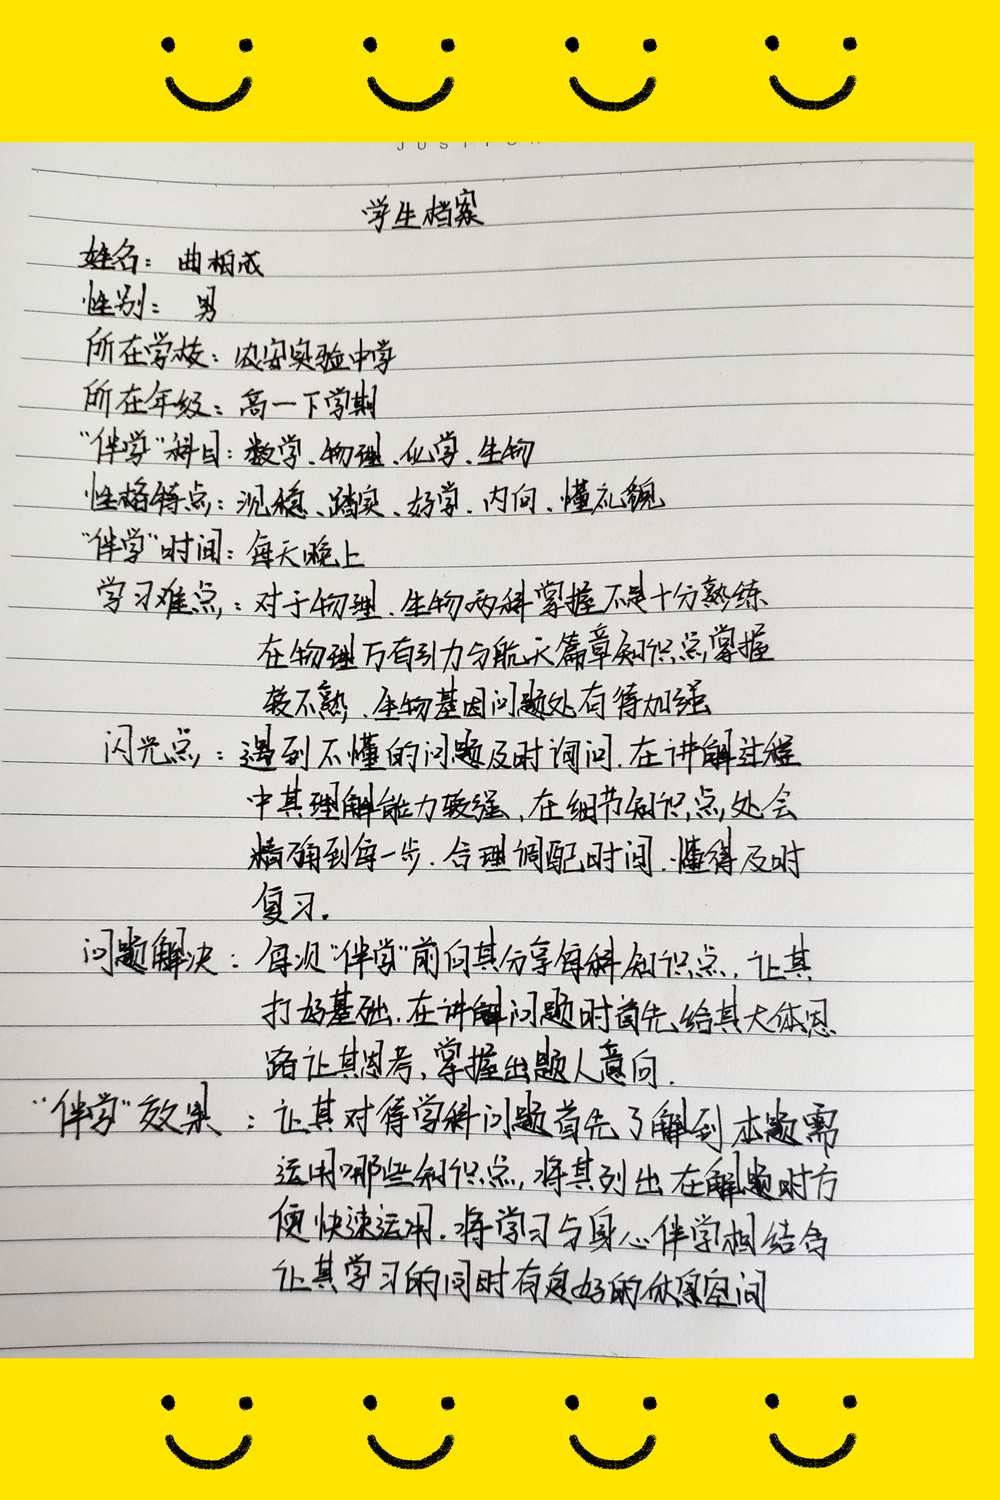 学生档案
姓名：曲柏成
性别：男
所在学校：农安实验中学
所在年级：高一下学期
“伴学”科目：数学、物理、化学、生物
性格特点：沉稳、踏实、好学、内向、懂礼貌
“伴学”时间：每天晚上
学习难点：对于物理、生物两科掌握不是十分熟练
在物理万有引力与航天篇章知识点掌握
较不熟、生物基因问题处有待加强
闪光点：遇到不懂的问题及时询问.在讲解过程
中其理解能力较强、在细节知识点处会
精确到每一步.合理调配时间.懂得及时
复习.
问题解决：每次“伴学”前向其分享每科知识点，让其
打好基础.在讲解问题时首先给其大体思
路让其思考，掌握出题人意向.
“伴学”效果：让其对待学科问题首先了解到本题需
运用哪些知识点，将其列出在解题时方
便快速运用.将学习与身心伴学相结合
让其学习的同时有良好的休息空间